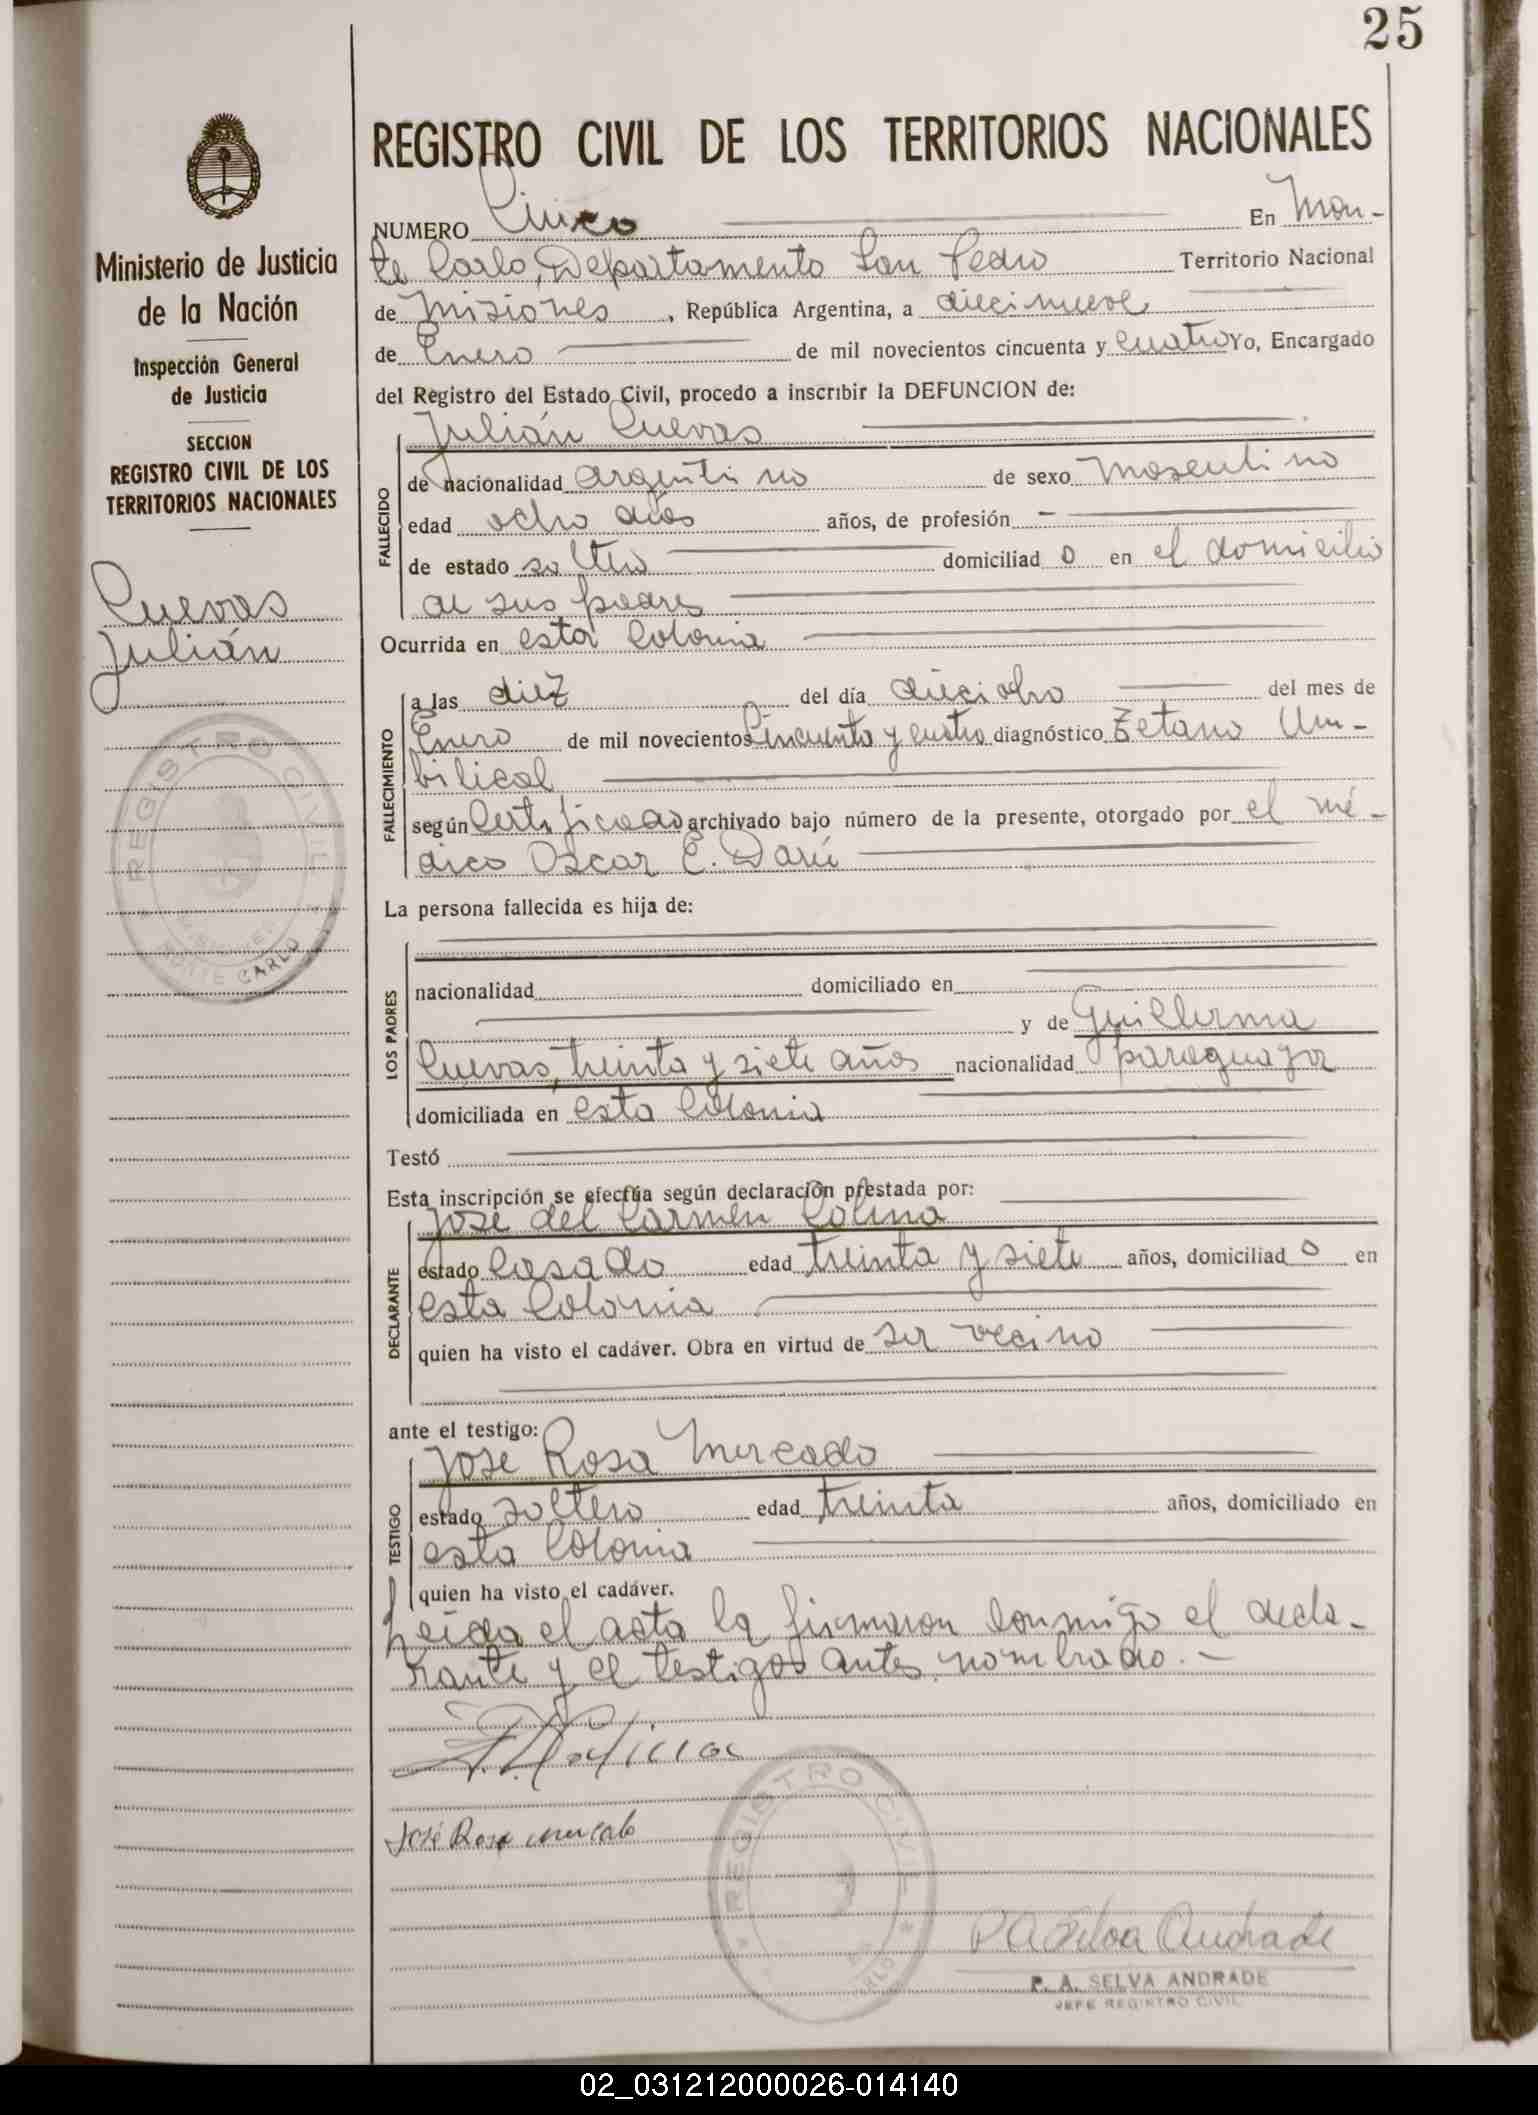 25
REGISTRO CIVIL DE LOS TERRITORIOS NACIONALES
Ministerio de Justicia
de la Nación
Inspección General
de Justicia
SECCION
REGISTRO CIVIL DE LOS
TERRITORIOS NACIONALES
Cuevas
Julián
REGISTRO CIVIL
MISIONES
MONTE CARLO
NUMERO Cinco En Mon-
te Carlo, Departamento San Pedro Territorio Nacional
de Misiones, República Argentina, a diecinueve
de Enero de mil novecientos cincuenta y cuatro Yo, Encargado
del Registro del Estado Civil, procedo a inscribir la DEFUNCION de:
FALLECIDO
Julián Cuevas
de nacionalidad argentino de sexo masculino
edad ocho días años, de profesión -
de estado soltero domiciliad o en el domicilio
de sus padres
Ocurrida en esta Colonia
FALLECIMIENTO
a las diez del día dieciocho del mes de
Enero de mil novecientos Cincuenta y cuatro diagnóstico Tetano Um-
bilical
según Certificado archivado bajo número de la presente, otorgado por el mé-
dico Oscar E. Darú
La persona fallecida es hija de:
LOS PADRES
nacionalidad domiciliado en
y de Guillerma
Cuevas, treinta y siete años nacionalidad paraguaya
domiciliada en esta Colonia
Testó
Esta inscripción se efectúa según declaración prestada por:
DECLARANTE
José del Carmen Colina
estado Casado edad treinta y siete años, domiciliad o en
esta Colonia
quien ha visto el cadáver. Obra en virtud de ser vecino
ante el testigo:
TESTIGO
José Rosa Mercado
estado soltero edad treinta años, domiciliado en
esta Colonia
quien ha visto el cadáver.
Leída el acta la firmaron conmigo el decla-
rante y el testigos antes nombrado. -
José Rosa mercado
REGISTRO CIVIL
CARLO
P A Selva Andrade
P. A. SELVA ANDRADE
JEFE REGISTRO CIVIL
02_031212000026-014140